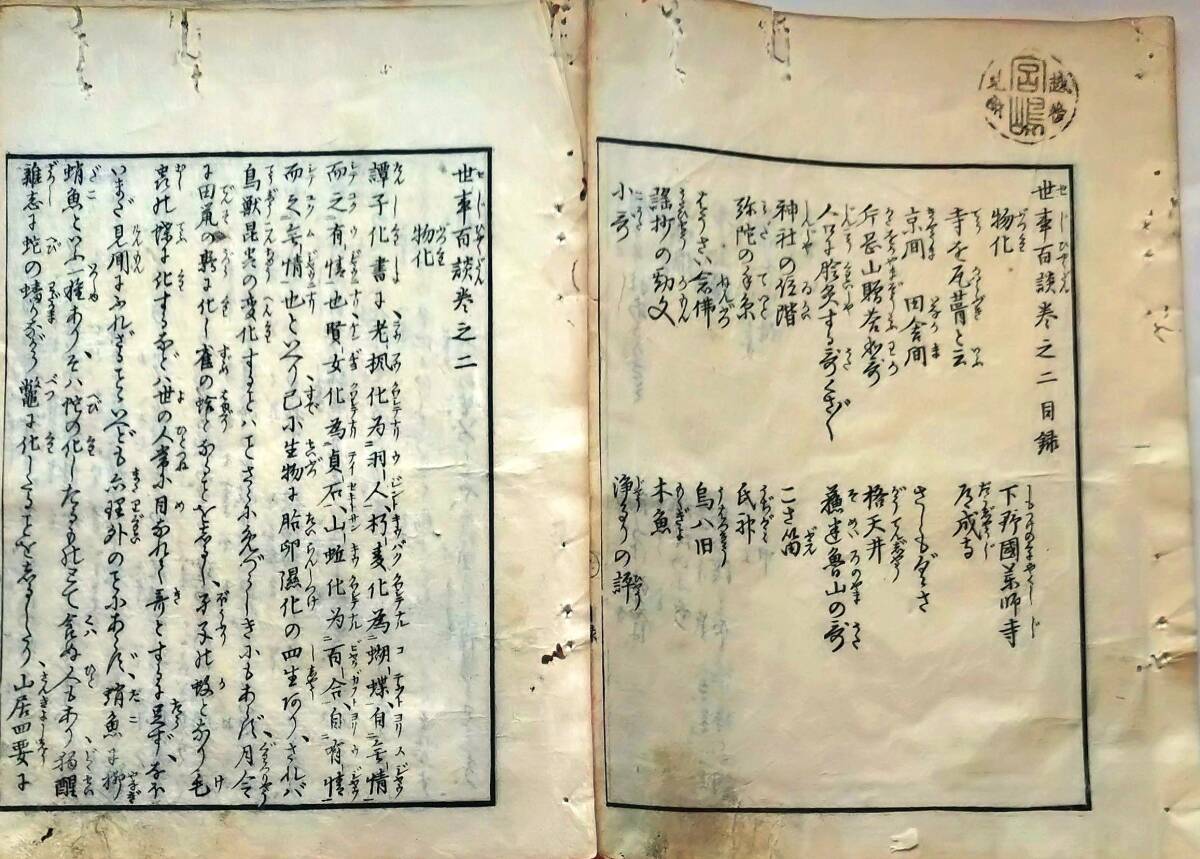 世事百談巻之二目録
物化
寺を瓦葺と云
京間 田舎間
人口に膾炙する哥くさ〴〵
神社の位階
弥陀の手糸
はうさい念佛
謡抄の勘文
小哥
下野國薬師寺
道成寺
さしもぐさ
格天井
蘓迷魯山の哥
こさ笛
氏神
烏八臼
木魚
浄るりの評
世事百談巻之二
物化
譚子化書に老楓化為羽人、朽麦化為蝴蝶、自無情
而之有情也賢女化為貞石、山蚯化為百合、自有情
而之無情也といへり已に生物に胎卵濕化の四生あり、されバ
鳥獣昆虫の変化することハことさらにめづらしきにもあらず月令
に田鼠の鶉に化し雀の蛤となることをしるし、孑孑の蚊となり毛
虫の蝶に化するなどハ世の人常に目なれて奇とするに足ず、なほ
いまだ見聞にふれざることといへども亦理外のことにあらず、蛸魚に柳
蛸魚といふ一種ありそハ蛇の化したるものとて食ぬ人もあり猫醒
雜志に蛇の蟠りながら鼈に化したることをしるしたり、山居四要に
宮嶋